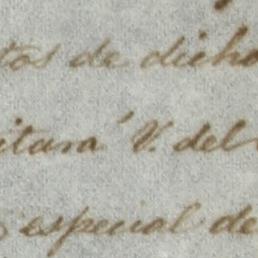 tos de dicho
itará V. del
especial de